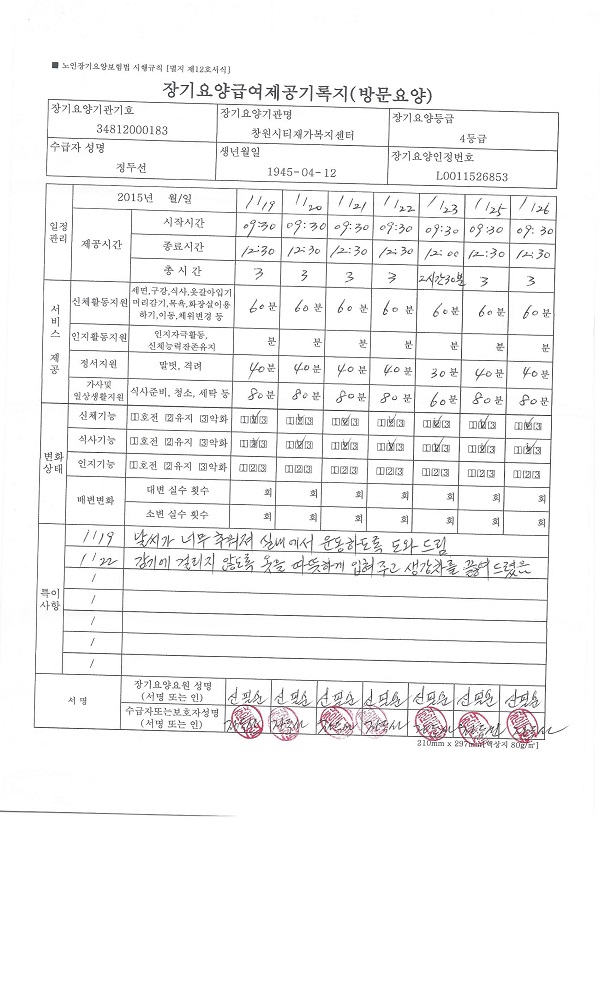 ■ 노인장기요양보험법 시행규칙 [별지 제12호서식]
장기요양급여제공기록지(방문요양)
장기요양기관기호 장기요양기관명 장기요양등급
34812000183 창원시티재가복지센터 4등급
수급자 성명 생년월일 장기요양인정번호
정두선 1945-04-12 L0011526853
2015년 월/일 11/19 11/20 11/21 11/22 11/23 11/25 11/26
일정관리 제공시간 시작시간 09:30 09:30 09:30 09:30 09:30 09:30 09:30
종료시간 12:30 12:30 12:30 12:30 12:00 12:30 12:30
총 시 간 3 3 3 3 2시간30분 3 3
서비스 제공 신체활동지원 세면,구강,식사,옷갈아입기
머리감기,목욕,화장실이용
하기,이동,체위변경 등 60분 60분 60분 60분 60분 60분 60분
인지활동지원 인지자극활동,
신체능력잔존유지 분 분 분 분 분 분 분
정서지원 말벗, 격려 40분 40분 40분 40분 30분 40분 40분
가사및
일상생활지원 식사준비, 청소, 세탁 등 80분 80분 80분 80분 60분 80분 80분
변화상태 신체기능 1호전 2유지 3악화 123 123 123 123 123 123 123
식사기능 1호전 2유지 3악화 123 123 123 123 123 123 123
인지기능 1호전 2유지 3악화 123 123 123 123 123 123 123
배변변화 대변 실수 횟수 회 회 회 회 회 회 회
소변 실수 횟수 회 회 회 회 회 회 회
특이사항 11/19 날씨가 너무 추워져 실내에서 운동하도록 도와 드림
11/22 감기에 걸리지 않도록 옷을 따뜻하게 입혀 주고 생강차를 끓여 드렸음
/
/
/
/
서 명 장기요양요원 성명
(서명 또는 인) 신필순 신필순 신필순 신필순 신필순 신필순 신필순
수급자또는보호자성명
(서명 또는 인)
210mm x 297mm[백상지 80g/㎡]